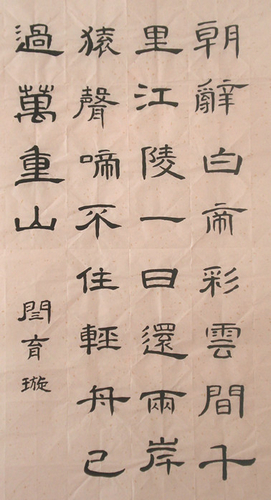 朝辭白帝彩雲間千
里江陵一日還兩岸
猿聲啼不住輕舟已
過萬重山
閆育璇